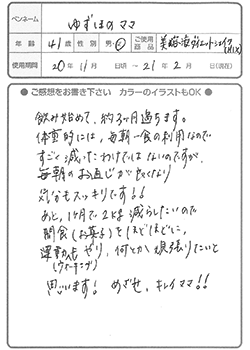 ペンネーム ゆずほのママ
年齢 41才 性別 男・女 ご使用商品 美穀菜ダイエットシェイク(MIX)
使用期間 20年11月 日頃 ～ 21年2月 日(現在)
● ご感想をお書き下さい カラーのイラストもOK ●
飲み始めて、約3ヶ月過ぎます。
体重的には、毎朝一食の利用なので
すごく減ったわけではないのですが、
毎朝のお通じが良くなり
気分もスッキリです!!
あと、1ヶ月で2kg減らしたいので
間食(お菓子)をほどほどに、
運動もやり、何とか頑張りたいと
(ウォーキング)
思います! めざせ、キレイママ!!